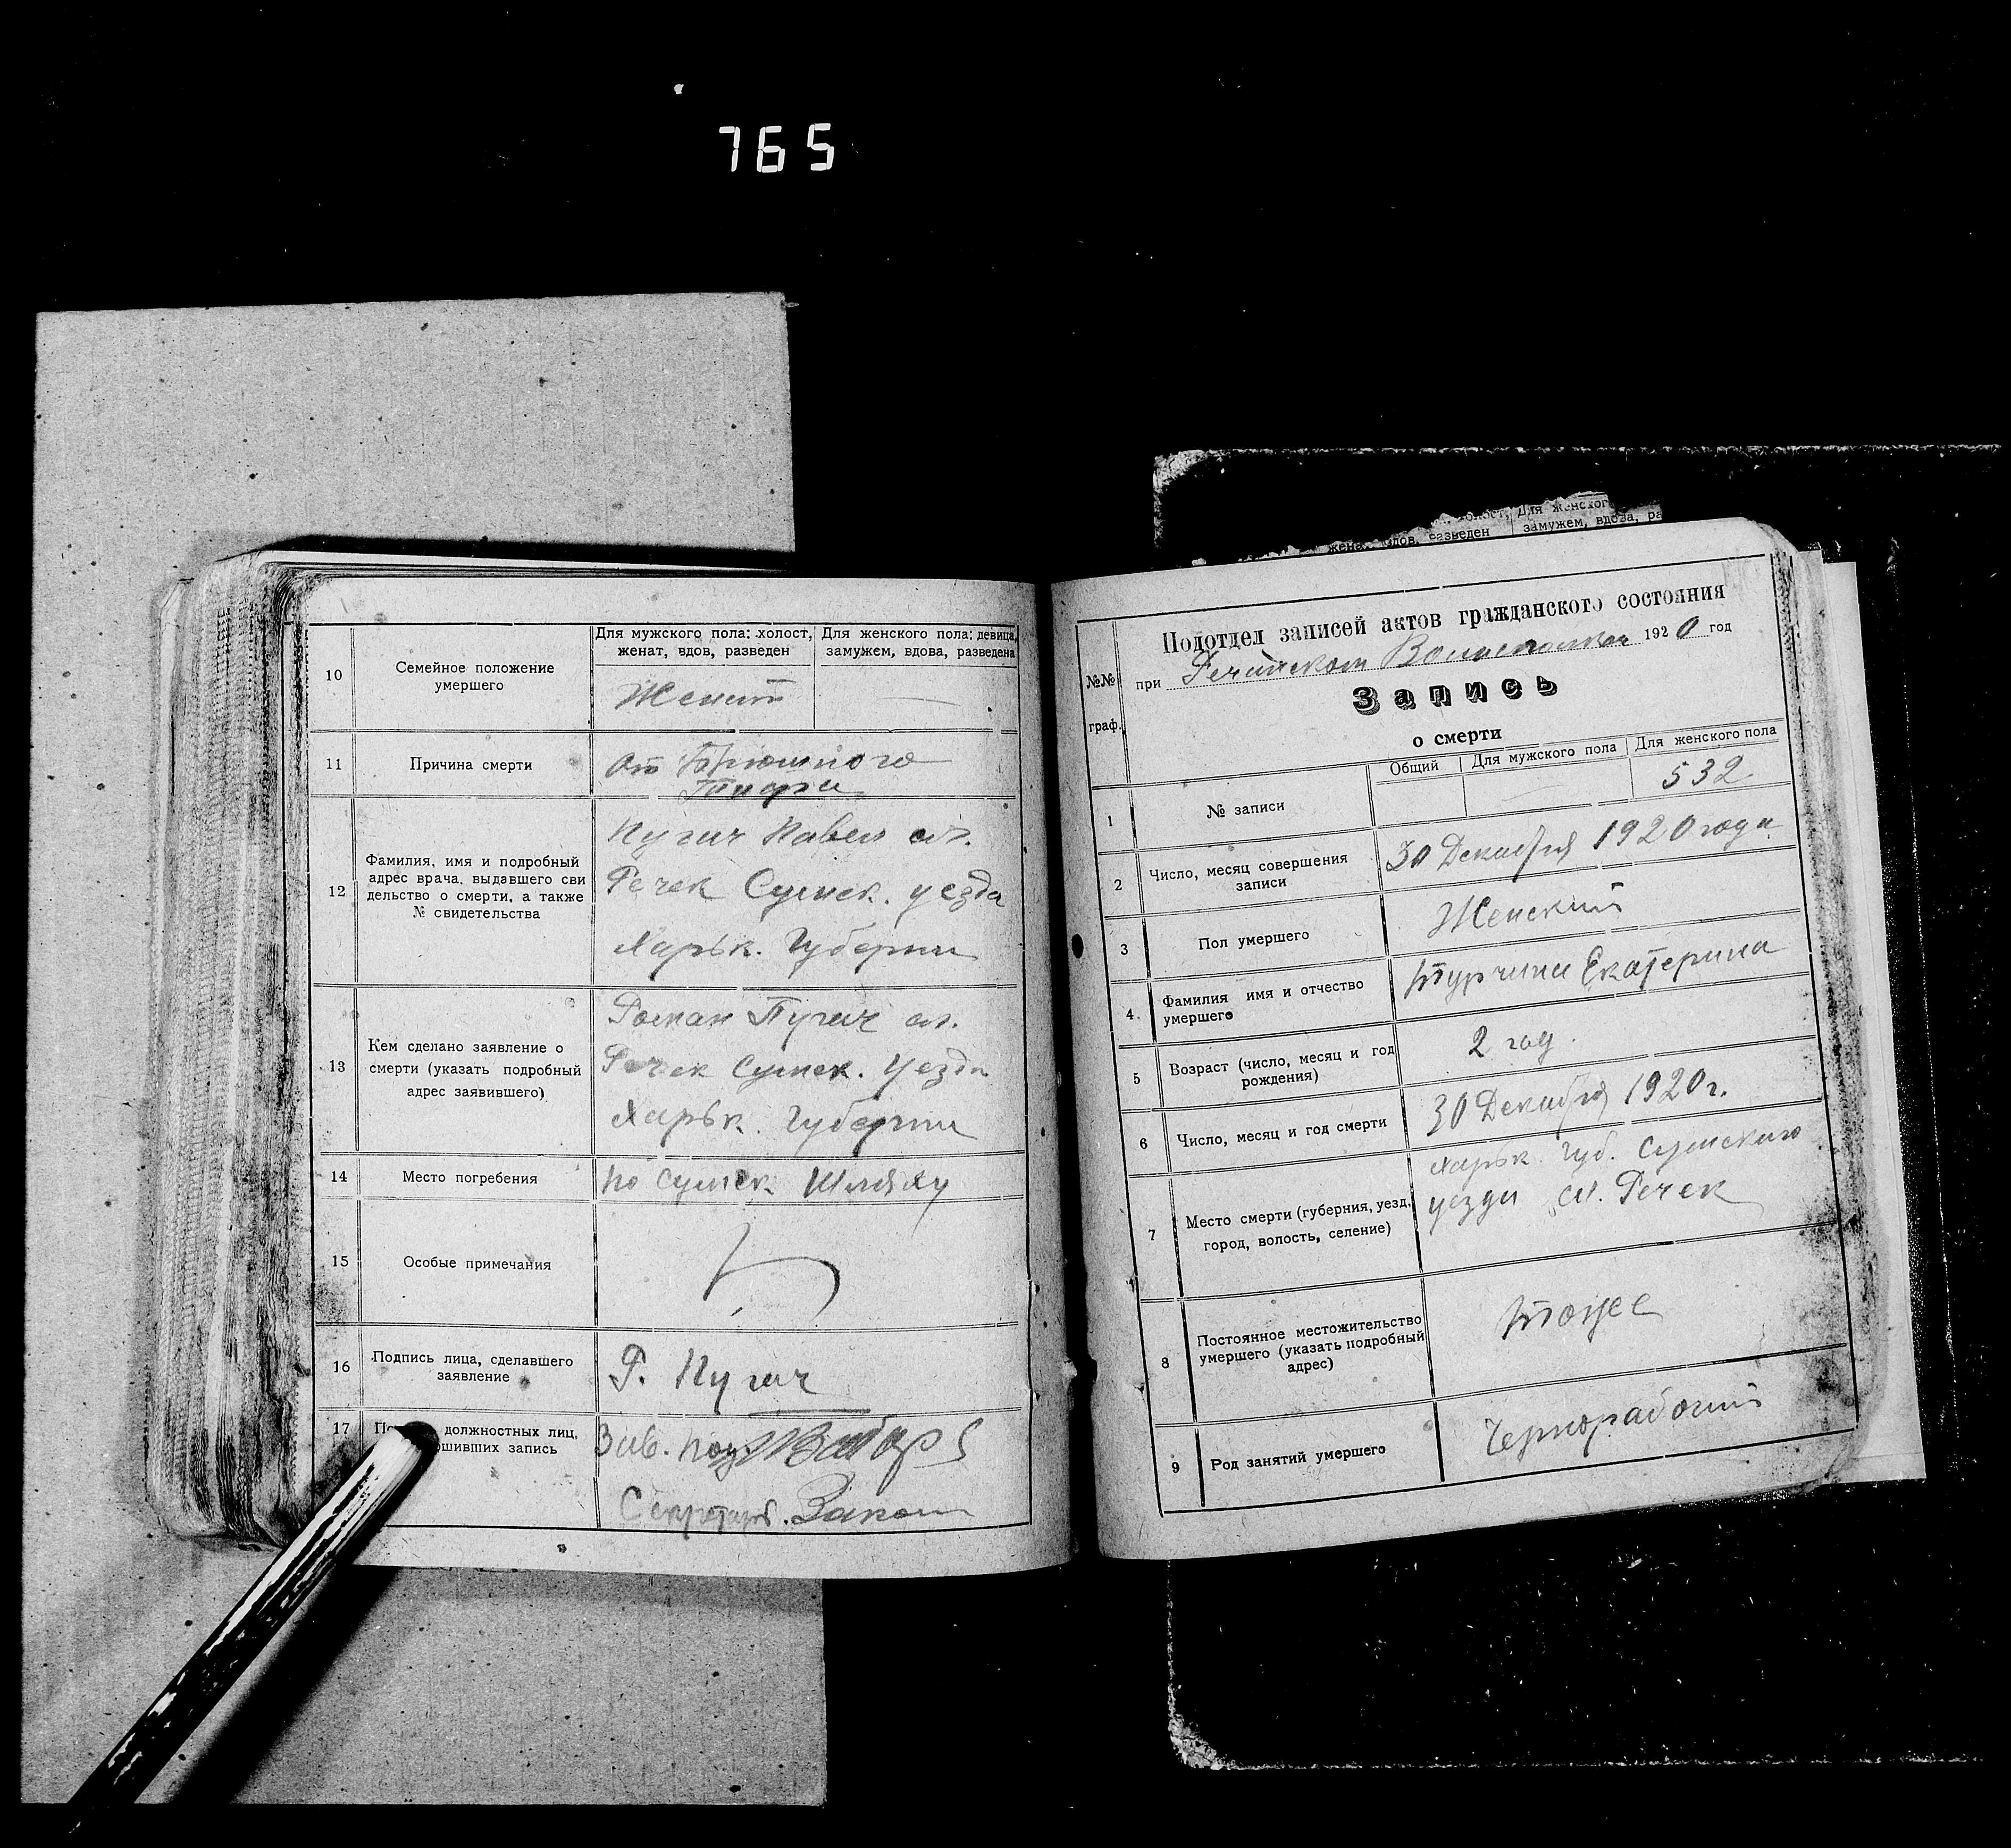 765
10
Семейное положение
умершего
Для мужского пола: холост,
женат, вдов, разведен
Для женского пола: девица,
замужем, вдова, разведена
Женат
11
Причина смерти
От Брюшного
Тифа
12
Фамилия, имя и подробный
адрес врача, выдавшего сви
дельство о смерти, а также
№ свидетельства
Пугач Павел сл.
Речек Сумск. уезда
Харьк. Губерни
13
Кем сделано заявление о
смерти (указать подробный
адрес заявившего)
Роман Пугач сл.
Речек Сумск. Уезда
Харьк. Губерни
14
Место погребения
по Сумск. Шляху
15
Особые примечания
16
Подпись лица, сделавшего
заявление
Р. Пугач
17
должностных лиц,
шивших запись
Зав. под
Секретарь
жена, вдов, разведен
Для женского
замужем, вдова, ра
№№
граф.
Подотдел записей актов гражданского состояния
при Речанском Волисполкоме 1920 год
Запись
о смерти
Общий
Для мужского пола
Для женского пола
1
№ записи
532
2
Число, месяц совершения
записи
30 Декабря 1920 года
3
Пол умершего
Женский
4.
Фамилия имя и отчество
умершего
Турчина Екатерина
5
Возраст (число, месяц и год
рождения)
2 год.
6
Число, месяц и год смерти
30 Декабря 1920 г.
7
Место смерти (губерния, уезд,
город, волость, селение)
Харьк. Губ. Сумского
уезда сл. Речек
8
Постоянное местожительство
умершего (указать подробный
адрес)
тоже
9
Род занятий умершего
Чернорабочий